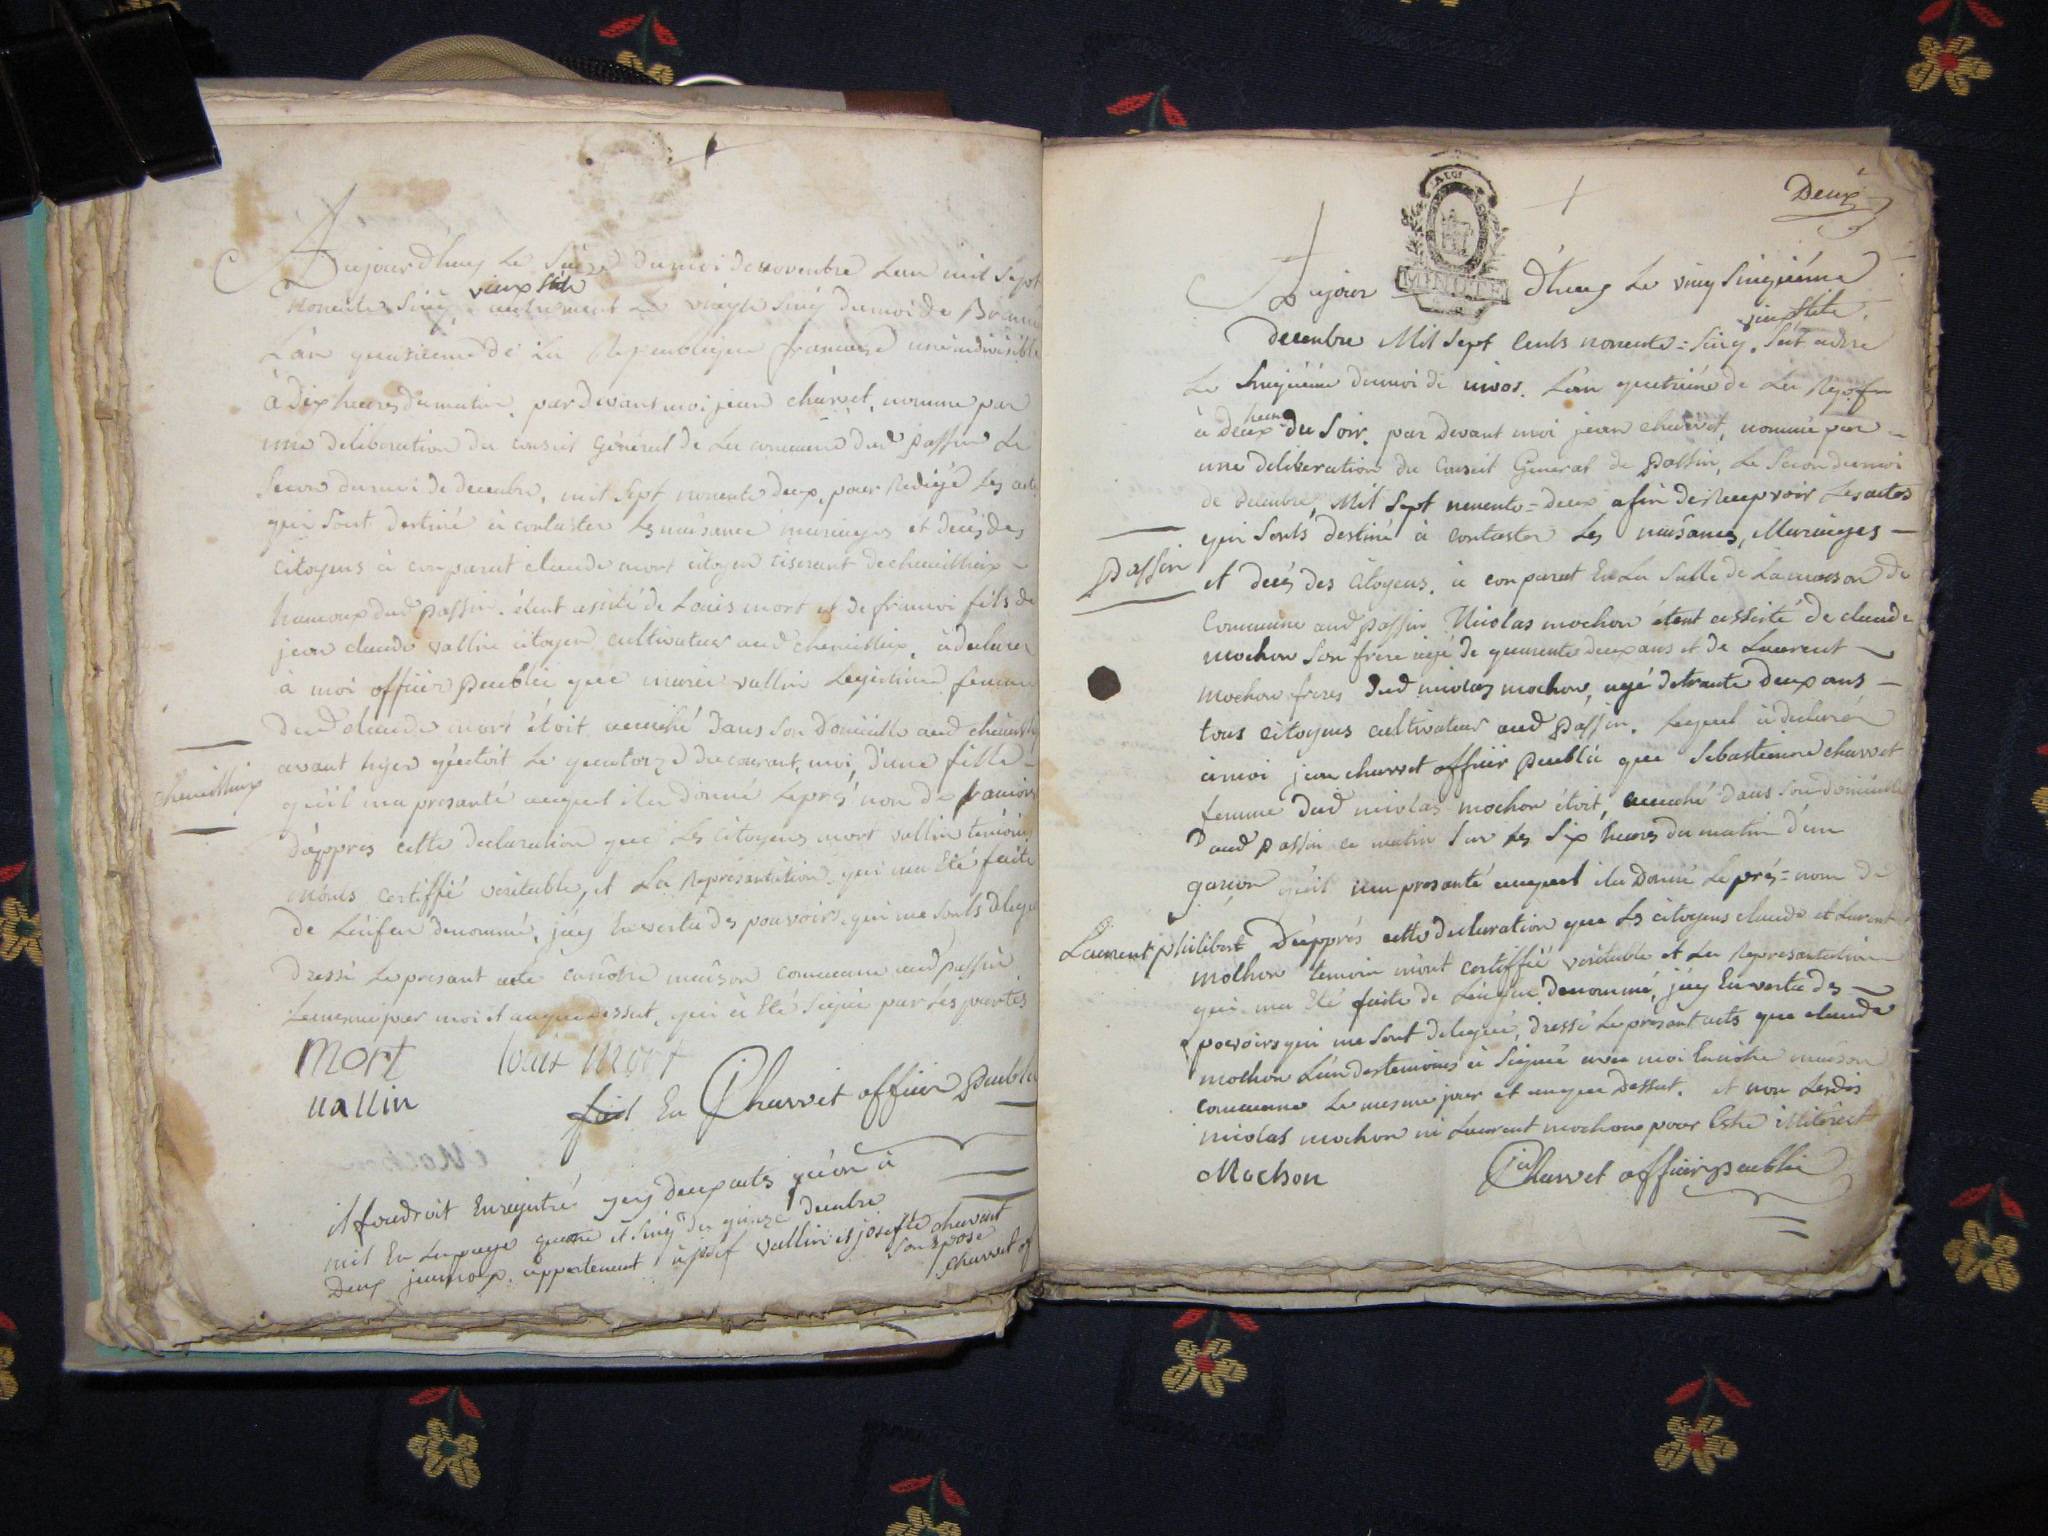 Aujourdhuy Le Sieze du moi de novembre Lan mil Sept
vieux stile
nonente Sinq, autrement Le vingte Sinq du moi de Brum
L'an quatrieme de La Republique francaise une indivisible
à Dix heures du matin, par Devant moi jean charvet, nomme par
une deliberation du conseil Général de La commune dud passin Le
Secon du moi de decembre, mil Sept nonente deux, pour Redigé Les acte
qui Sont destiné à contaster Les naisance mariages et decés des
citoyens à conparut claude mort citoyen tiserant de cheneillieux
hamaux dud passin. étent asisté de Louis mort et de francoi fils de
jean claude vallin citoyen cultivateur aud cheneillieux, à declarer
à moi officier publie que marie vallin Legitime femme
dud claude mort étoit acuché dans Son Domicille aud
avant hyer qu'étoit Le quatorze du courant, moi, d'une fille
cheneillieux
qu'il ma presanté auquel ila donné Le pré non de francoise
d'appres cette declaration que Les Citoyens mort vallin temoins
m'onts certiffié veritable, et La Representation qui ma Eté faite
de L'enfan denommé, j'ay En vertu des pouvoirs qui me Sonts deleg
dressé Le presant acte en nôtre maison commune aud passin
Le mesme jour moi et an que dessut, qui à Eté Signé par Les partes
mort louis mort
vallin
fait En Charvet officier publie
il foudroit Enregistré yey deux actes qu'on à
mit En La page quatre et Sinq du quinze decembre
Deux jeumaux appartenent à josef vallin et josefte charvet
Son Epose
charvet of
Deux
MINUTE
Aujour d'huy Le vinq Sinquiéme
vieux Stile
decembre Mil Sept Cents nonente = Sinq. Soit autre
Le Sinquiéme du moi de nivos. L'an quatriéme de La Rep. fr
heure
à deux du Soir. par Devant moi jean charvet, nommé par
une deliberation du Conseil General de passin, Le Secon du moi
de decembre, Mil Sept nonente = deux afin de Recepvoir Les actes
qui Sonts destiné à contaster Les naisances, Mariages
passin
et decés des Citoyens. à conparut En La Salle de La maison de
Commune aud passin Nicolas mochon étent assisté de claude
mochon Son frere agé de quarente deux ans et de Laurent
mochon freres dud nicolas mochon, agé de trante deux ans
tous citoyens cultivateur aud passin. Lequel à declaré
à moi jean charvet officier publie que Sebastienne charvet
femme dud nicolas mochon étoit, acuché dans Son domicille
aud passin ce matin Sur Les Six heures du matin d'un
garçon qu'il ma presanté auquel ila donné Le pré = nom de
Laurent philibert D'apprés cette declaration que Les citoyens claude et Laurent
mochon temoin m'ont certiffié veritable et La Representation
qui ma Eté faite de L'enfan denommé, j'ay En vertu des
povoirs qui me Sont delegué, dressé Le presant acte que claude
mochon L'un des temoins à Signé avec moi En nôtre maison
commune Le mesme jour et an que dessut. et non Lesdis
nicolas mochon ni Laurent mochon pour Estre illiteret
Mochon Charvet officier publie